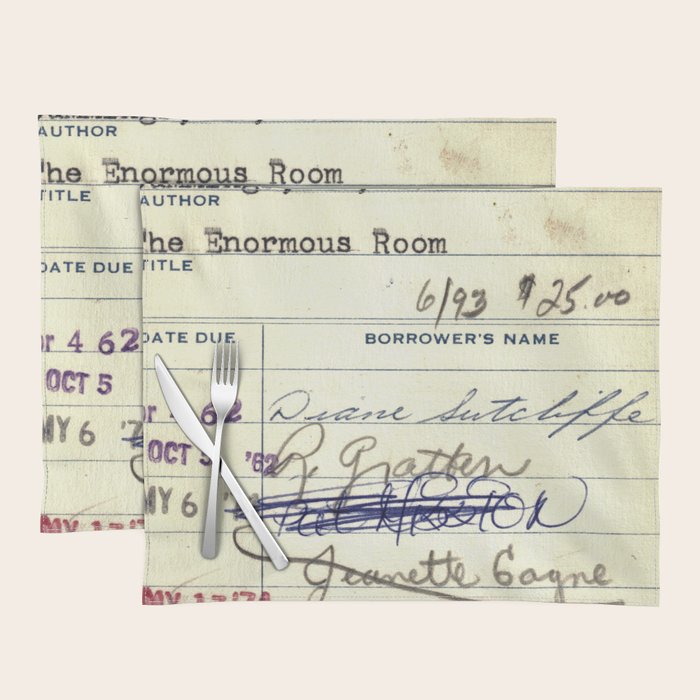 AUTHOR
The Enormous Room
TITLE
DATE DUE
r 4 62
OCT 5
MY 6 '7
MY 17 '71
AUTHOR
The Enormous Room
TITLE
6/93 $25.00
DATE DUE BORROWER'S NAME
62 Diane Sutcliffe
OCT 5 '62 R. Gratten
MY 6
Jeanette Gagne